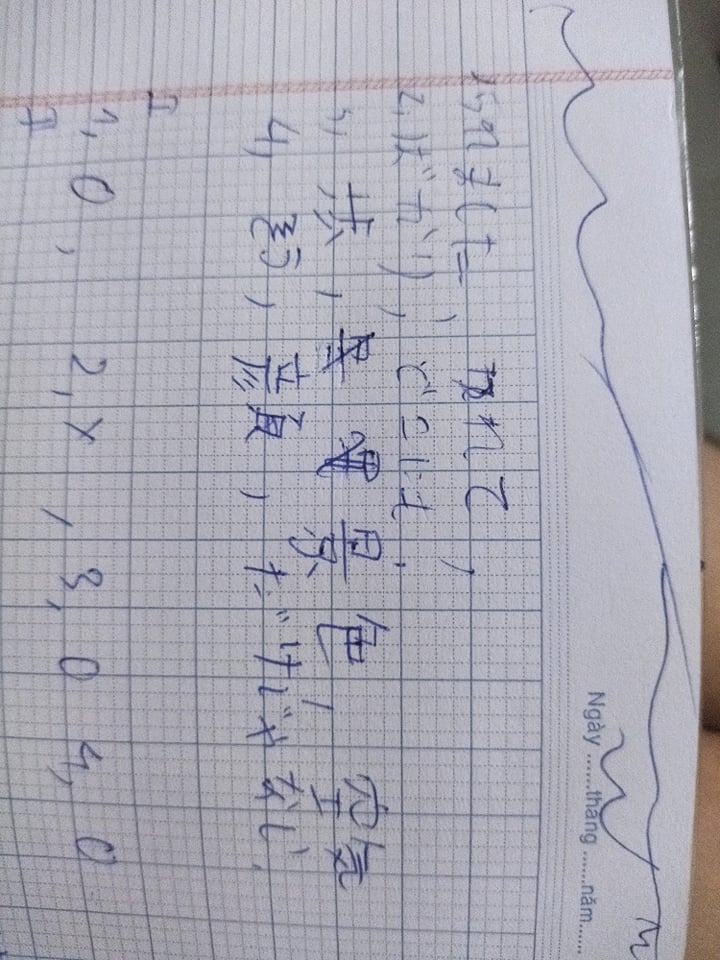 Ngày ......tháng ......năm......
られました, かれて,
2, ばかり, どこにも,
3, 歩, 景色, 空気
4, 顔, だけじゃない.
I
1, 0, 2, X, 3, 0 4, 0